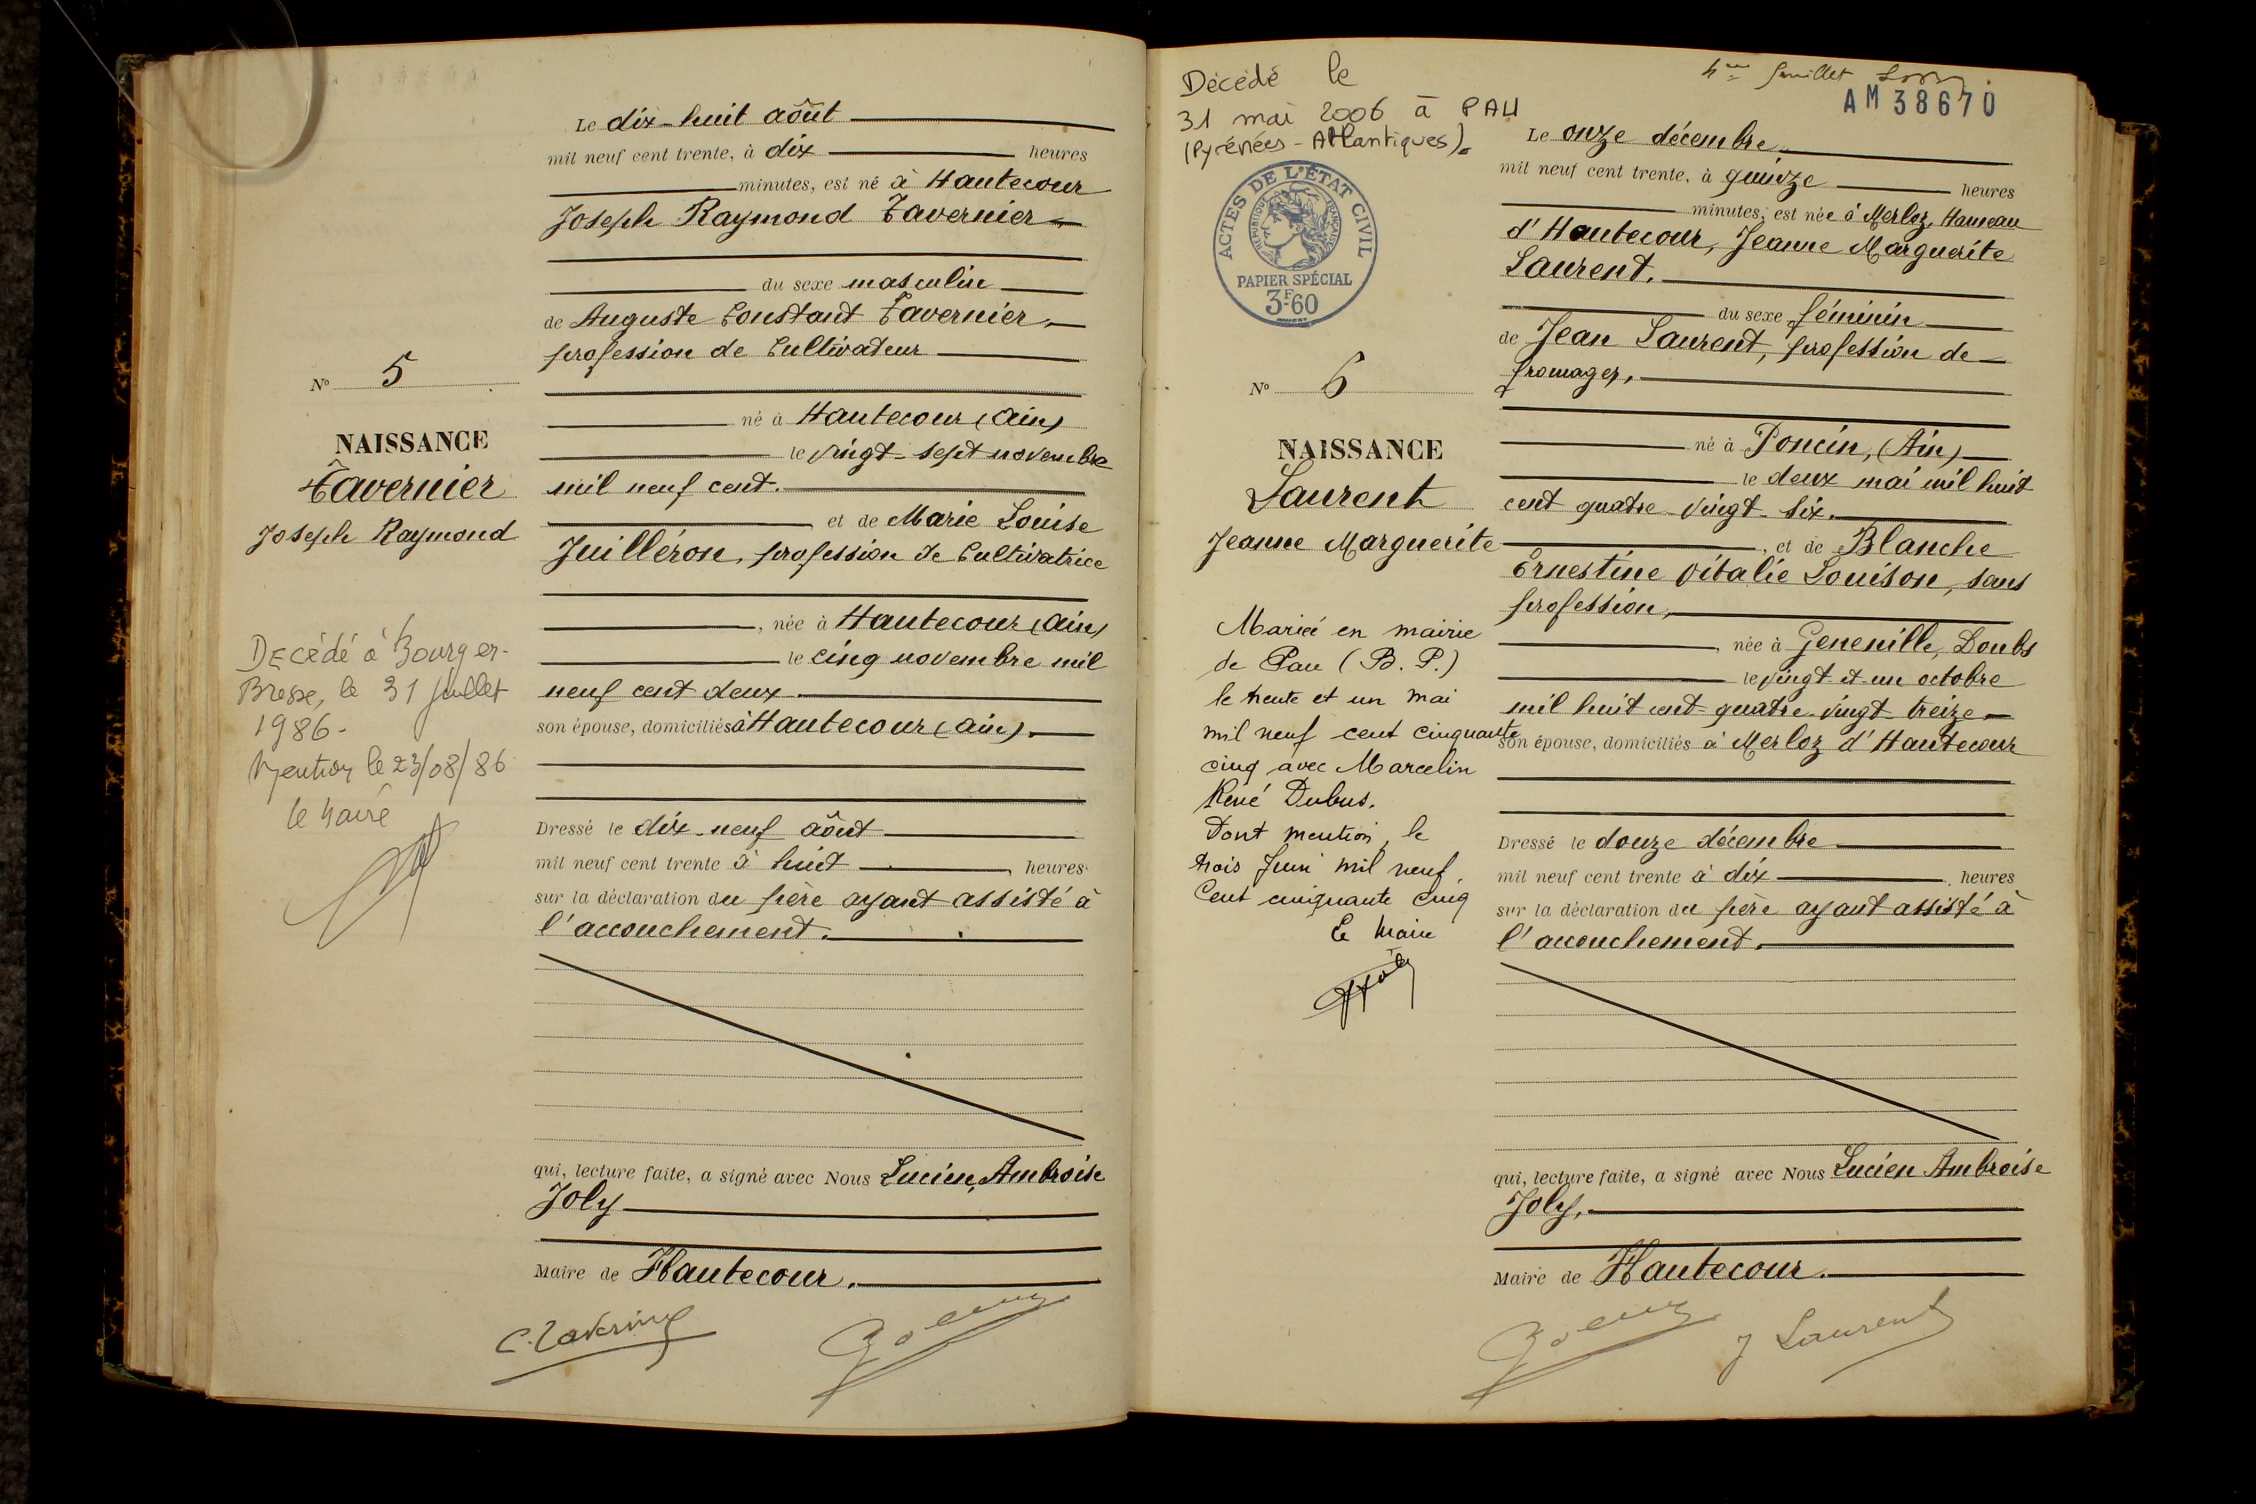 Le dix-huit août
mil neuf cent trente, à dix heures
minutes, est né à Hautecour
Joseph Raymond Tavernier
du sexe masculin
de Auguste Constant Tavernier,
profession de Cultivateur
né à Hautecour (Ain)
le vingt-sept novembre
mil neuf cent.
et de Marie Louise
Juilléron, profession de Cultivatrice
, née à Hautecour (Ain)
le cinq novembre mil
neuf cent deux
son épouse, domiciliés à Hautecour (Ain).
Dressé le dix-neuf août
mil neuf cent trente à huit heures
sur la déclaration du père ayant assisté à
l'accouchement.
qui, lecture faite, a signé avec Nous Lucien, Ambroise
Joly
Maire de Hautecour.
No 5
NAISSANCE
Tavernier
Joseph Raymond
Décédé à Bourg en-
Bresse, le 31 juillet
1986-
Mention le 23/08/86
le Maire
Décédé le
31 mai 2006 à PAU
(Pyrénées-Atlantiques).
feuillet
AM 38670
ACTES DE L'ÉTAT CIVIL
RÉPUBLIQUE FRANÇAISE
PAPIER SPÉCIAL
3F60
No 6
NAISSANCE
Laurent
Jeanne Marguerite
Mariée en mairie
de Pau (B. P.)
le trente et un mai
mil neuf cent cinquante
cinq avec Marcelin
René Dubus.
Dont mention, le
trois Juin mil neuf
Cent cinquante cinq
Le Maire
Le onze décembre
mil neuf cent trente, à quinze heures
minutes, est née à Merloz, Hameau
d'Hautecour, Jeanne Marguerite
Laurent.
du sexe féminin
de Jean Laurent, profession de
fromager,
né à Poncin, (Ain)
le deux mai mil huit
cent quatre-vingt-six.
, et de Blanche
Ernestine Vitalie Louison, sans
profession,
, née à Geneuille, Doubs
le vingt-et-un octobre
mil huit cent quatre-vingt treize
son épouse, domiciliés à Merloz d'Hautecour
Dressé le douze décembre
mil neuf cent trente à dix heures
sur la déclaration du père ayant assisté à
l'accouchement.
qui, lecture faite, a signé avec Nous Lucien Ambroise
Joly,
Maire de Hautecour.
J Laurent